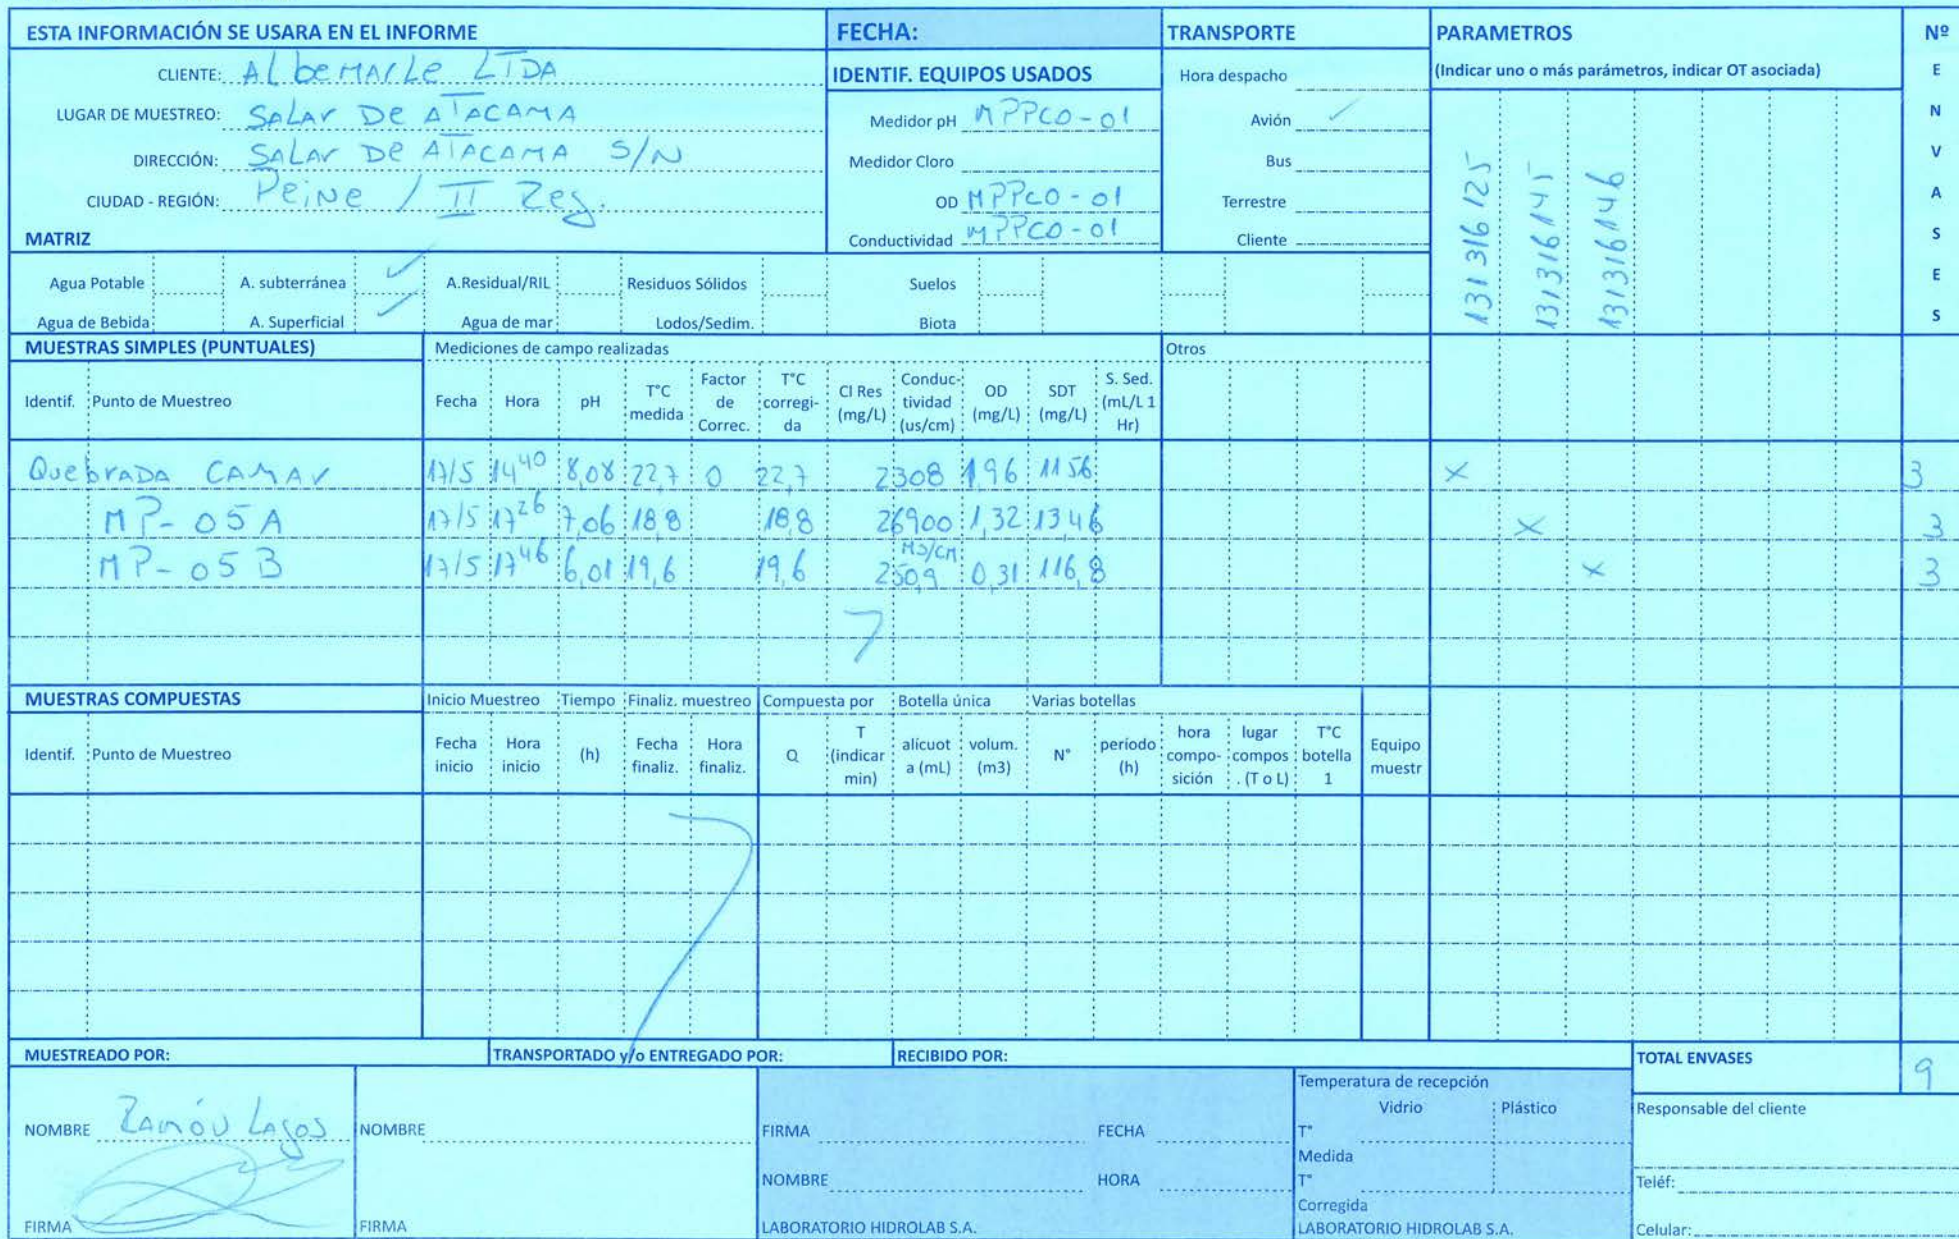 ESTA INFORMACIÓN SE USARA EN EL INFORME
CLIENTE: Albemarle LTDA
LUGAR DE MUESTREO: SALAR DE ATACAMA
DIRECCIÓN: SALAR DE ATACAMA S/N
CIUDAD - REGIÓN: Peine / II Reg.
FECHA:
IDENTIF. EQUIPOS USADOS
Medidor pH MPPCO-01
Medidor Cloro
OD MPPCO-01
Conductividad MPPCO-01
TRANSPORTE
Hora despacho
Avión ✓
Bus
Terrestre
Cliente
PARAMETROS
(Indicar uno o más parámetros, indicar OT asociada)
131316125
131316145
131316146
Nº
E
N
V
A
S
E
S
MATRIZ
Agua Potable A. subterránea ✓ A.Residual/RIL Residuos Sólidos Suelos
Agua de Bebida A. Superficial ✓ Agua de mar Lodos/Sedim. Biota
MUESTRAS SIMPLES (PUNTUALES) Mediciones de campo realizadas Otros
Identif. Punto de Muestreo Fecha Hora pH T°C medida Factor de Correc. T°C corregi-da Cl Res (mg/L) Conduc-tividad (us/cm) OD (mg/L) SDT (mg/L) S. Sed. (mL/L 1 Hr)
Quebrada CAMAR 17/5 14 40 8,08 22,7 0 22,7 2308 1,96 1156 x 3
MP-05A 17/5 17 26 7,06 18,8 18,8 26900 1,32 1346 x 3
MP-05B 17/5 17 46 6,01 19,6 19,6 MS/CM 250,9 0,31 116,8 x 3
MUESTRAS COMPUESTAS Inicio Muestreo Tiempo Finaliz. muestreo Compuesta por Botella única Varias botellas
Identif. Punto de Muestreo Fecha inicio Hora inicio (h) Fecha finaliz. Hora finaliz. Q T (indicar min) alicuot a (mL) volum. (m3) N° período (h) hora compo-sición lugar compos . (T o L) T°C botella 1 Equipo muestr
MUESTREADO POR: TRANSPORTADO y/o ENTREGADO POR: RECIBIDO POR: TOTAL ENVASES 9
NOMBRE Ramón Lagos
FIRMA
NOMBRE
FIRMA
FIRMA FECHA
NOMBRE HORA
LABORATORIO HIDROLAB S.A.
Temperatura de recepción
Vidrio Plástico
T°
Medida
T°
Corregida
LABORATORIO HIDROLAB S.A.
Responsable del cliente
Teléf:
Celular: